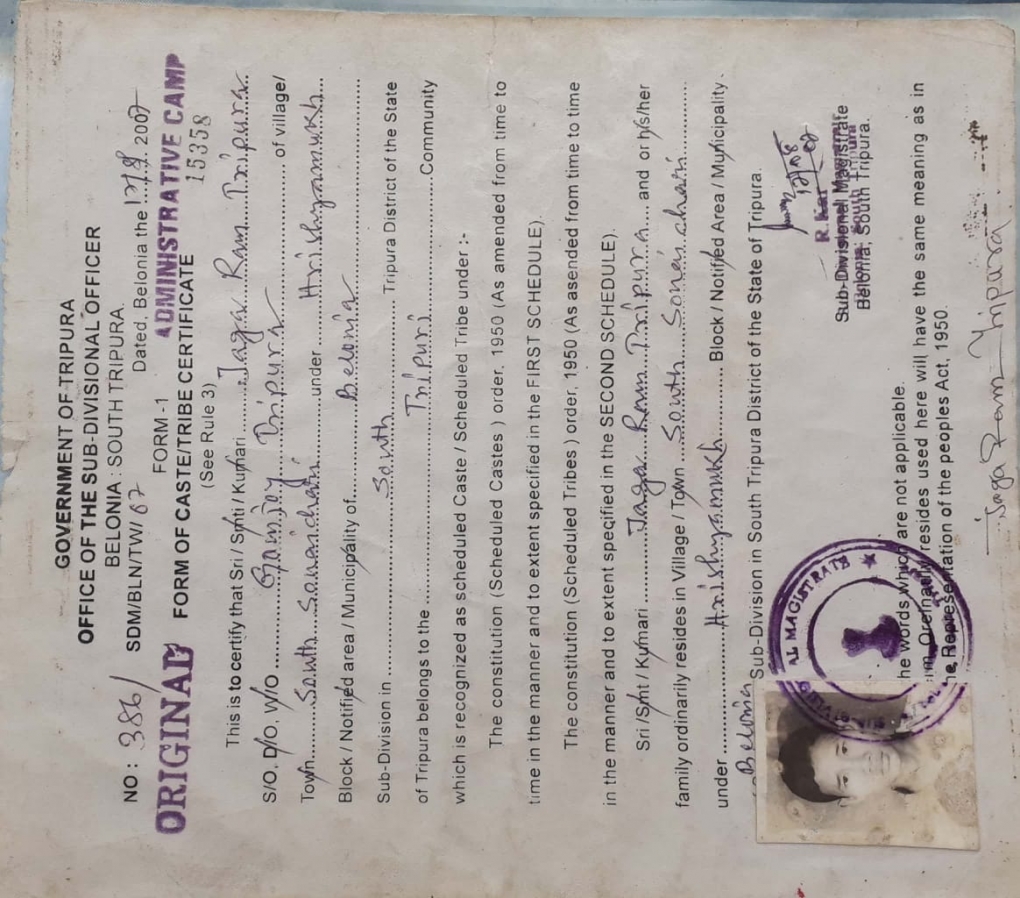 GOVERNMENT OF TRIPURA
OFFICE OF THE SUB-DIVISIONAL OFFICER
BELONIA : SOUTH TRIPURA.
NO : 386/ SDM/BLN/TW/67 Dated, Belonia the 2007
FORM -1 ADMINISTRATIVE CAMP
ORIGINAL FORM OF CASTE/TRIBE CERTIFICATE 15358
(See Rule 3)
This is to certify that Sri / Smti / Kumari Jaga Ram Tripura
S/O, D/O, W/O Tripura of village/
Town South Sonaichari under Hrishyamukh
Block / Notified area / Municipality of Belonia
Sub-Division in South Tripura District of the State
of Tripura belongs to the Tripuri Community
which is recognized as scheduled Caste / Scheduled Tribe under :-
The constitution (Scheduled Castes ) order, 1950 (As amended from time to
time in the manner and to extent specified in the FIRST SCHEDULE).
The constitution (Scheduled Tribes ) order, 1950 (As asended from time to time
in the manner and to extent specified in the SECOND SCHEDULE).
Sri /Smt / Kumari Jaga Ram Tripura and or h/s/her
family ordinarily resides in Village / Town South Sonaichari
under Hrishyamukh Block / Notified Area / Municipality.
Belonia Sub-Division in South Tripura District of the State of Tripura.
Sub-Divisional Magistrate
Belonia, South Tripura.
AL MAGISTRATE
he words which are not applicable.
Ordinarily resides used here will have the same meaning as in
he Representation of the peoples Act, 1950.
Jaga Ram Tripura